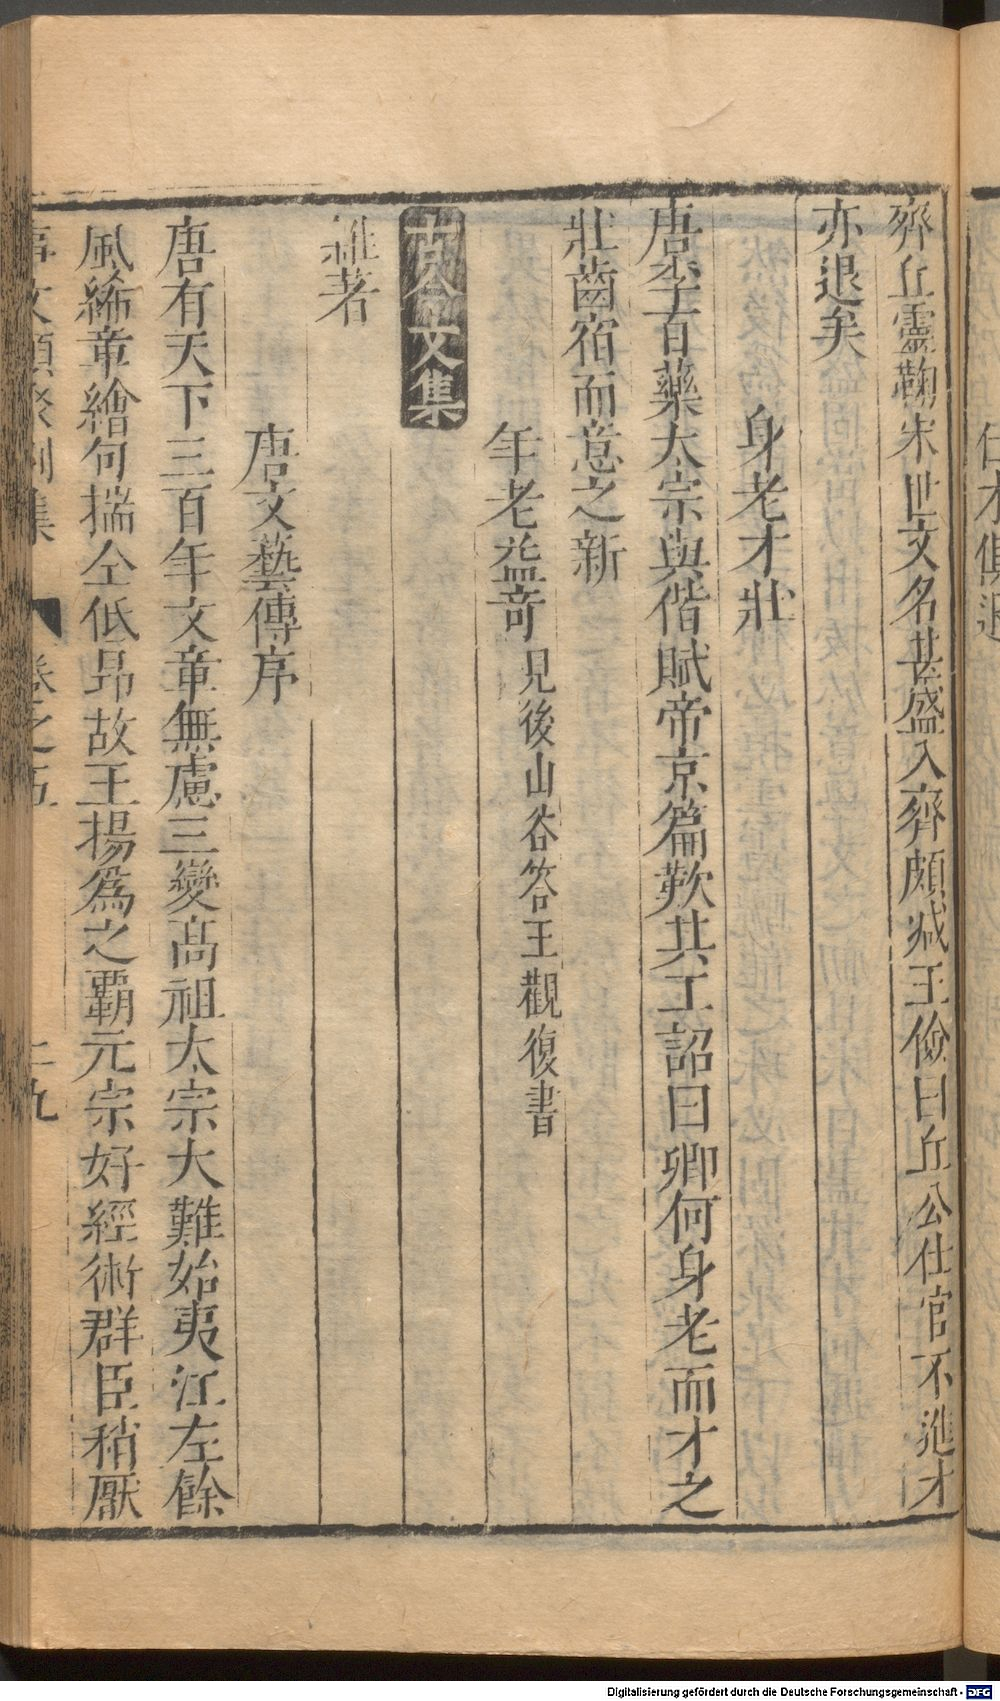 齊丘靈鞠宋世文名甚盛入齊頗減王儉曰丘公仕官不進才
亦退矣
身老才壯
唐李百藥太宗與偕賦帝京篇歎其工詔曰卿何身老而才之
壯齒宿而意之新
年老益竒見後山谷答王觀復書
古今文集
雜著
唐文藝傳序
唐有天下三百年文章無慮三變髙祖太宗大難始夷江左餘
風絺章繪句揣仝低昂故王揚爲之覇元宗好經術群臣稍厭
事文類聚別集 卷之五 二九
Digitalisierung gefördert durch die Deutsche Forschungsgemeinschaft - DFG